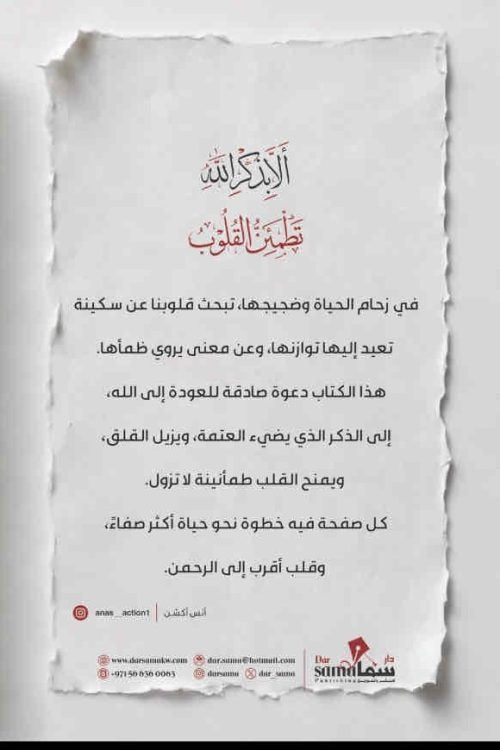 أَلَا بِذِكْرِ اللَّهِ
تَطْمَئِنُّ الْقُلُوبُ
في زحام الحياة وضجيجها، تبحث قلوبنا عن سكينة
تعيد إليها توازنها، وعن معنى يروي ظمأها.
هذا الكتاب دعوة صادقة للعودة إلى الله،
إلى الذكر الذي يضيء العتمة، ويزيل القلق،
ويمنح القلب طمأنينة لا تزول.
كل صفحة فيه خطوة نحو حياة أكثر صفاءً،
وقلب أقرب إلى الرحمن.
أنس أكشن | anas__action1
دار سما
Dar sama
Publishing
www.darsamakw.com dar.sama@hotmail.com
+971 56 656 0063 darsama dar_sama